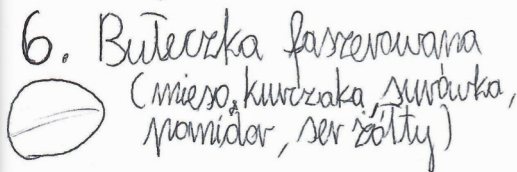 6. Bułeczka faszerowana
(mięso, kurczaka, surówka,
pomidor, ser żółty)